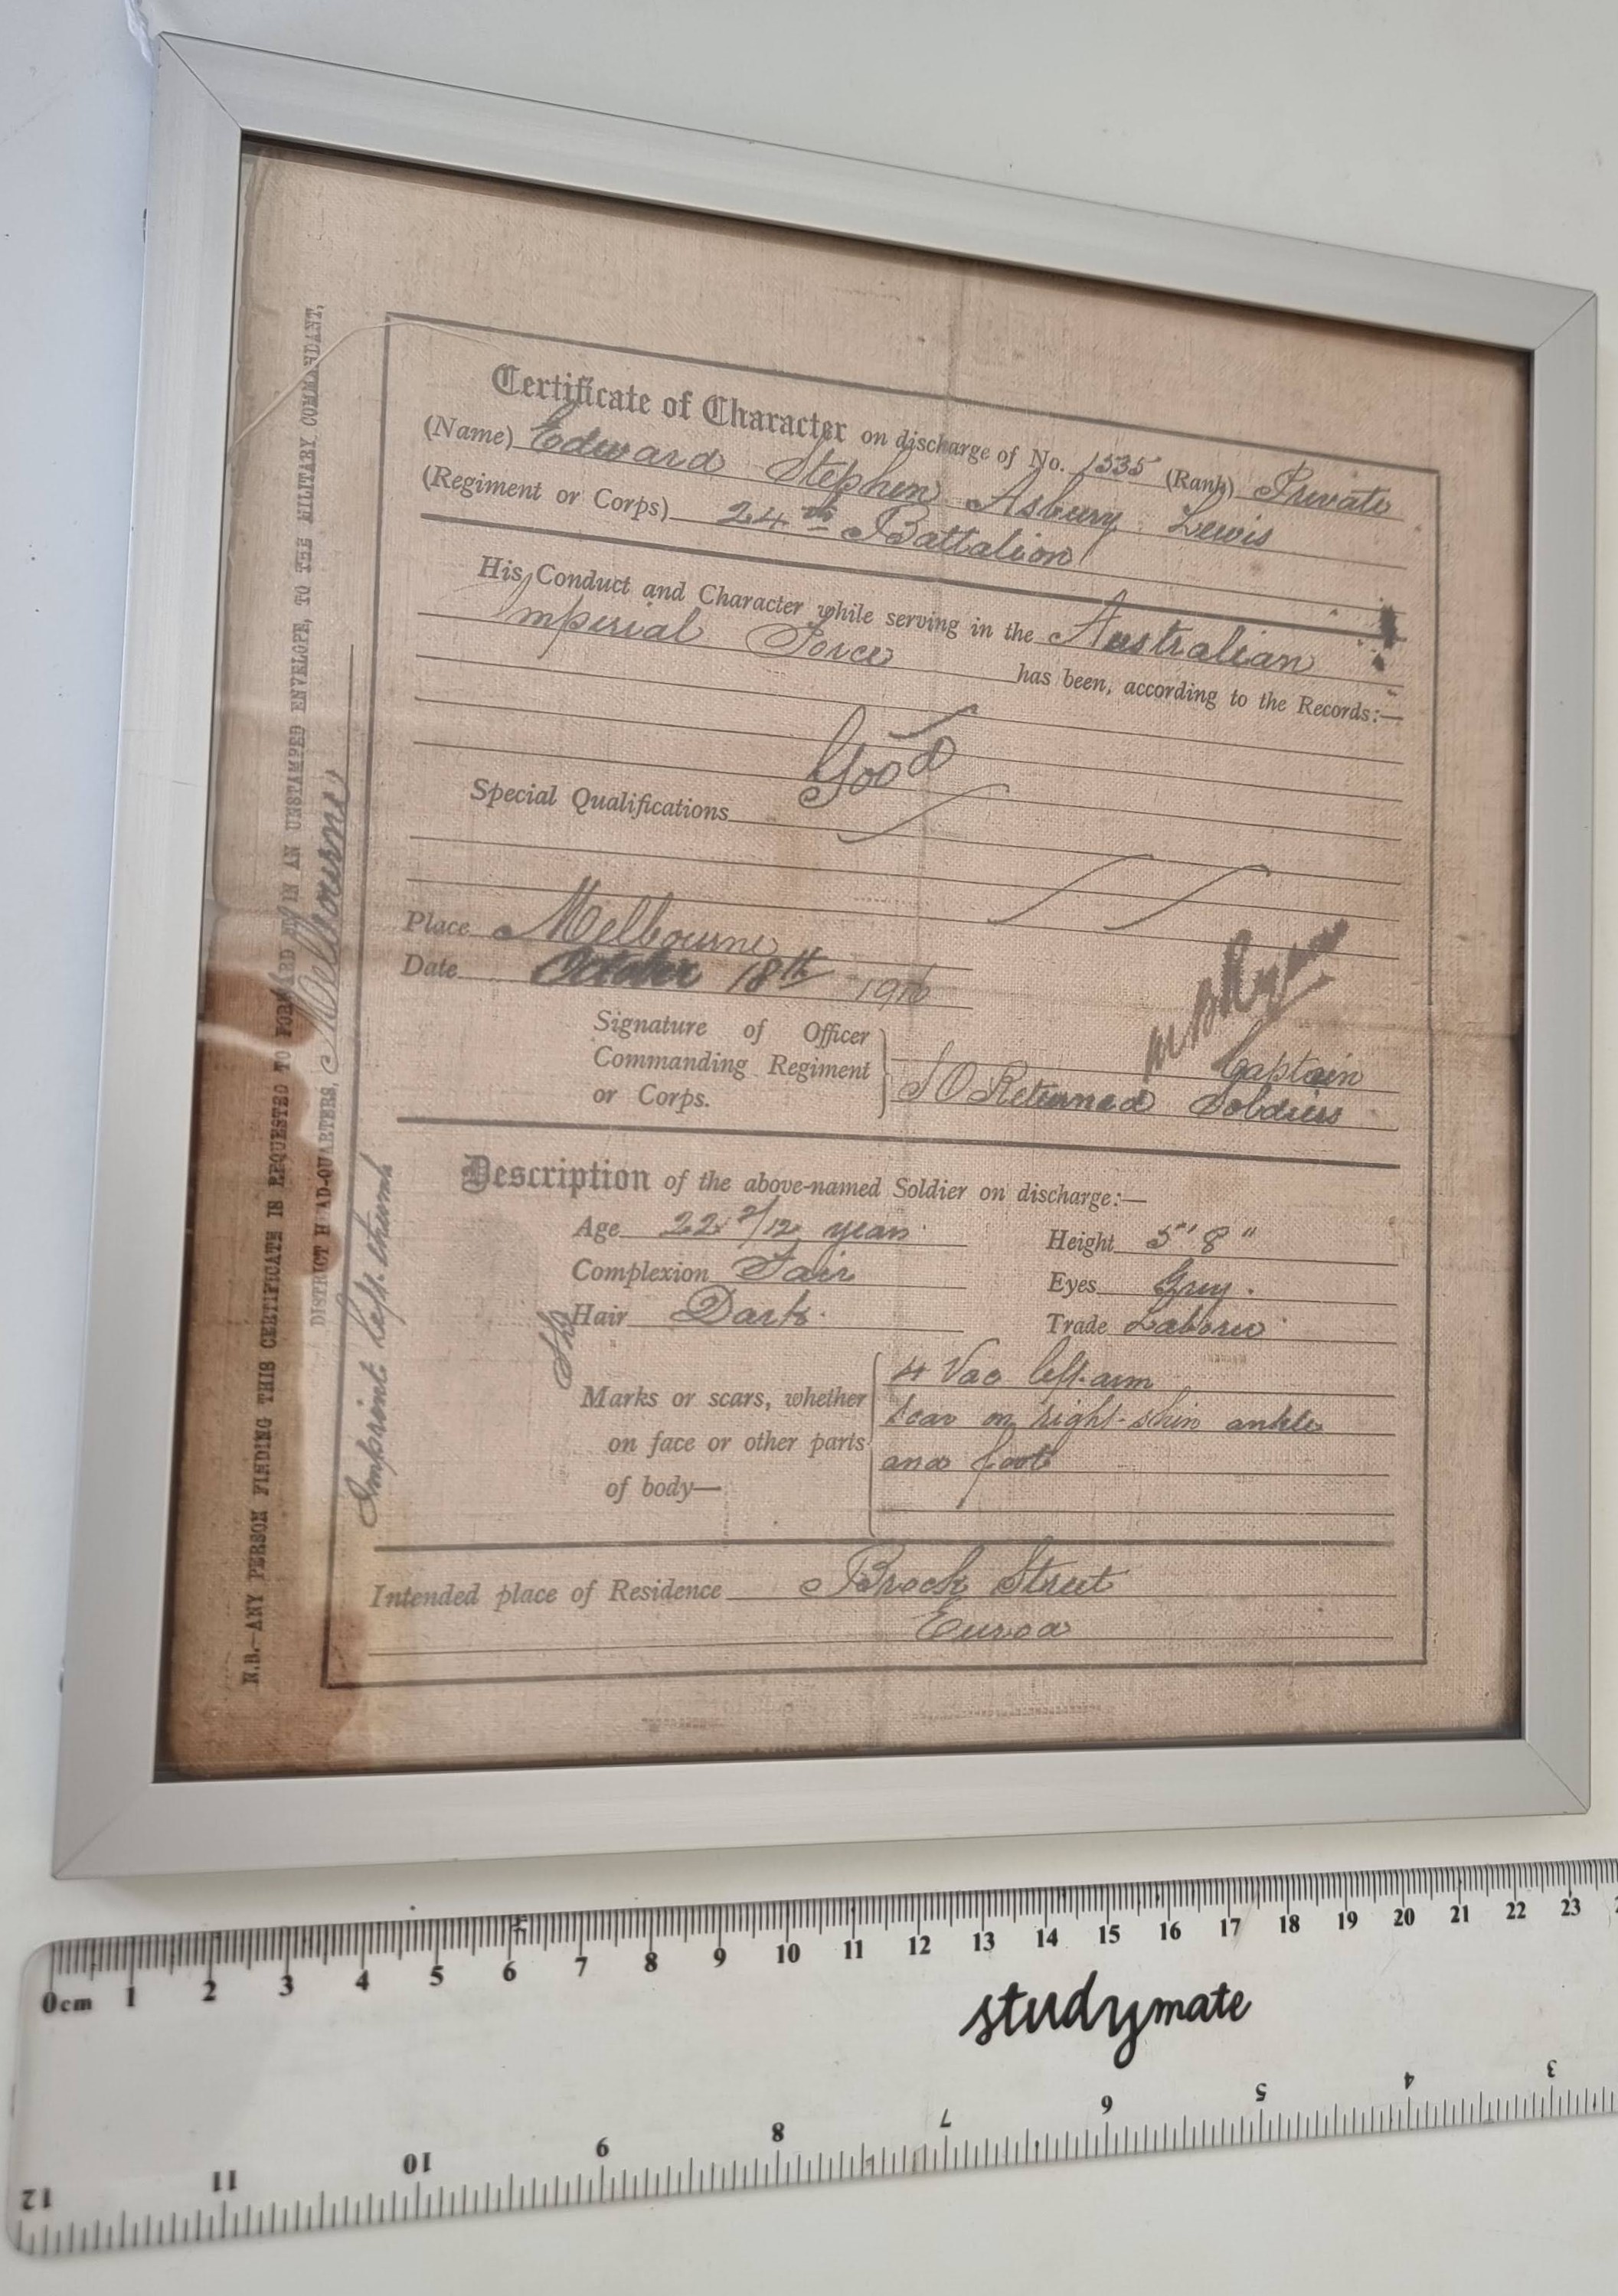 Certificate of Character on discharge of No. 1535 (Rank) Private
(Name) Edward Stephen Asbury Lewis
(Regiment or Corps) 24th Battalion
His Conduct and Character while serving in the Australian
Imperial Force has been, according to the Records:—
Good
Special Qualifications
Place Melbourne
Date October 18th 1916
Signature of Officer
Commanding Regiment
or Corps.
Captain
S O Returned Soldiers
Description of the above-named Soldier on discharge:—
Age 22 2/12 years Height 5' 8"
Complexion Fair Eyes Grey.
Hair Dark. Trade Laborer
Marks or scars, whether
on face or other parts
of body—
4 Vac left arm
Scar on right shin ankle
and foot
Intended place of Residence Brock Street
Euroa
N.B.—ANY PERSON FINDING THIS CERTIFICATE IS REQUESTED TO FORWARD IT IN AN UNSTAMPED ENVELOPE, TO THE MILITARY COMMANDANT,
DISTRICT HEAD-QUARTERS, Melbourne
Imprint left thumb
0cm 1 2 3 4 5 6 7 8 9 10 11 12 13 14 15 16 17 18 19 20 21 22 23
studymate
12 11 10 9 8 7 6 5 4 3